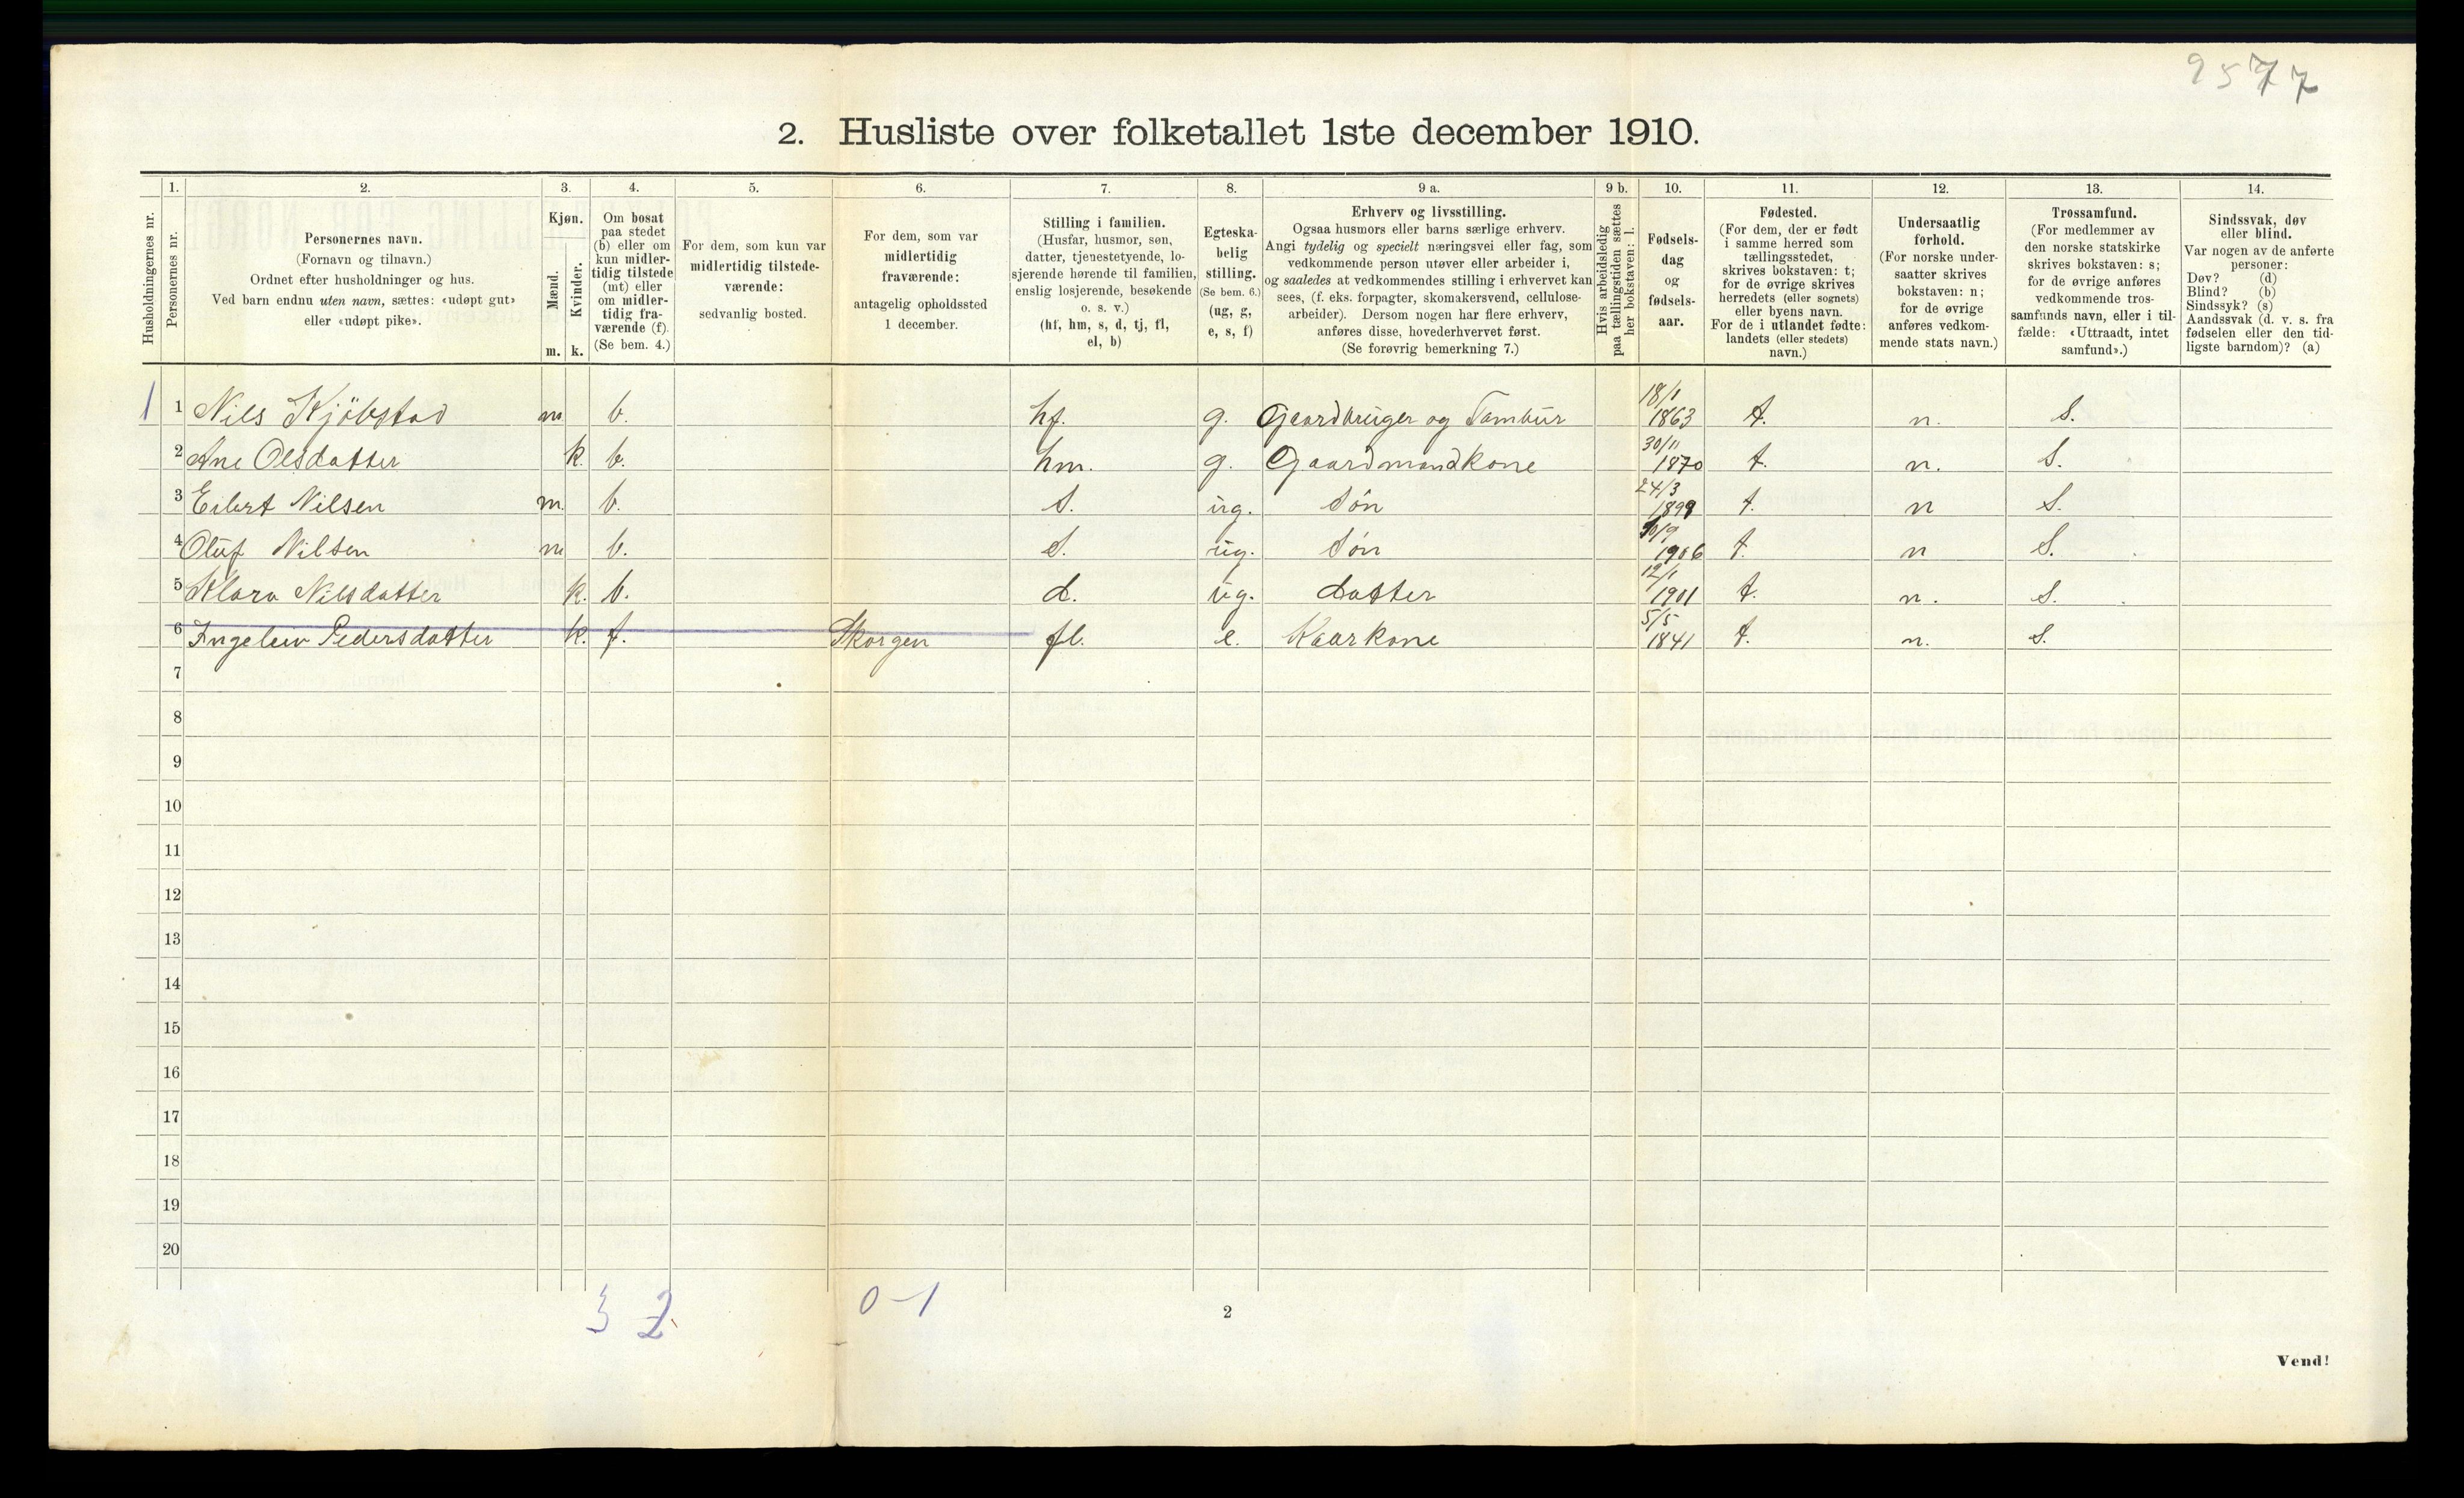 9577
2. Husliste over folketallet 1ste december 1910.
Husholdningernes nr.
1.
Personernes nr.
2.
Personernes navn.
(Fornavn og tilnavn.)
Ordnet efter husholdninger og hus.
Ved barn endnu uten navn, sættes: «udøpt gut»
eller «udøpt pike».
3.
Kjøn.
Mænd.
m.
Kvinder.
k.
4.
Om bosat
paa stedet
(b) eller om
kun midler-
tidig tilstede
(mt) eller
om midler-
tidig fra-
værende (f).
(Se bem. 4.)
5.
For dem, som kun var
midlertidig tilstede-
værende:
sedvanlig bosted.
6.
For dem, som var
midlertidig
fraværende:
antagelig opholdssted
1 december.
7.
Stilling i familien.
(Husfar, husmor, søn,
datter, tjenestetyende, lo-
sjerende hørende til familien,
enslig losjerende, besøkende
o. s. v.)
(hf, hm, s, d, tj, fl,
el, b)
8.
Egteska-
belig
stilling.
(Se bem. 6.)
(ug, g,
e, s, f)
9 a.
Erhverv og livsstilling.
Ogsaa husmors eller barns særlige erhverv.
Angi tydelig og specielt næringsvei eller fag, som
vedkommende person utøver eller arbeider i,
og saaledes at vedkommendes stilling i erhvervet kan
sees, (f. eks. forpagter, skomakersvend, cellulose-
arbeider). Dersom nogen har flere erhverv,
anføres disse, hovederhvervet først.
(Se forøvrig bemerkning 7.)
9 b.
Hvis arbeidsledig
paa tællingstiden sættes
her bokstaven: l.
10.
Fødsels-
dag
og
fødsels-
aar.
11.
Fødested.
(For dem, der er født
i samme herred som
tællingsstedet,
skrives bokstaven: t;
for de øvrige skrives
herredets (eller sognets)
eller byens navn.
For de i utlandet fødte:
landets (eller stedets)
navn.)
12.
Undersaatlig
forhold.
(For norske under-
saatter skrives
bokstaven: n;
for de øvrige
anføres vedkom-
mende stats navn.)
13.
Trossamfund.
(For medlemmer av
den norske statskirke
skrives bokstaven: s;
for de øvrige anføres
vedkommende tros-
samfunds navn, eller i til-
fælde: «Uttraadt, intet
samfund».)
14.
Sindssvak, døv
eller blind.
Var nogen av de anførte
personer:
Døv? (d)
Blind? (b)
Sindssyk? (s)
Aandssvak (d. v. s. fra
fødselen eller den tid-
ligste barndom)? (a)
1 1 Nils Kjöbstad m b. hf. g. Gaardbruger og Tambur 18/1 1863 t. n. S.
2 Ane Olsdatter k. b. hm. g. Gaardmandkone 30/11 1870 t. n. S.
3 Eilert Nilsen m. b. S. ug. Sön 24/3 1898 t. n S.
4 Oluf Nilsen m b. S. ug. Sön 10/9 1906 t. n S.
5 Klara Nilsdatter k. b. d. ug. datter 12/1 1901 t. n. S.
6 Ingeleiv Pedersdatter k. f. Skorgen fl. e. Kaarkone 5/5 1841 t. n. S.
7
8
9
10
11
12
13
14
15
16
17
18
19
20
3 2 0-1
2
Vend!